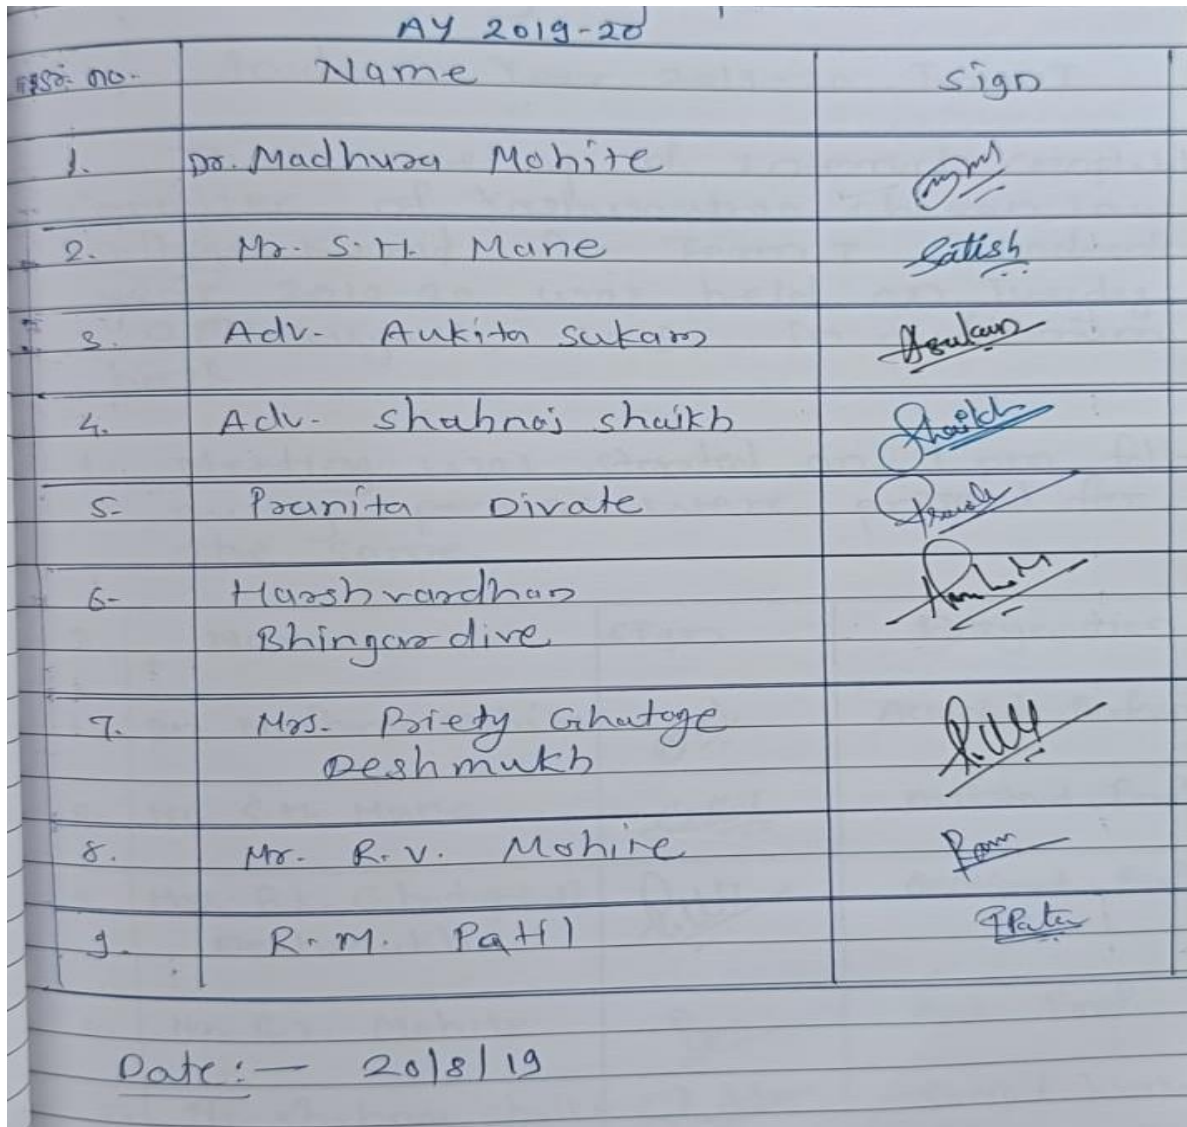 AY 2019-20
Sr. no. Name Sign
1. Dr. Madhura Mohite
2. Mr. S.H. Mane Satish
3. Adv. Ankita Sukare Asukare
4. Adv. Shabnaj Shaikh Shaikh
5. Pranita Divate
6- Harshvardhan
Bhingardive
7. Mrs. Briety Ghatage
Deshmukh
8. Mr. R.V. Mohire Ram
9. R.M. Patil
Date:- 20/8/19